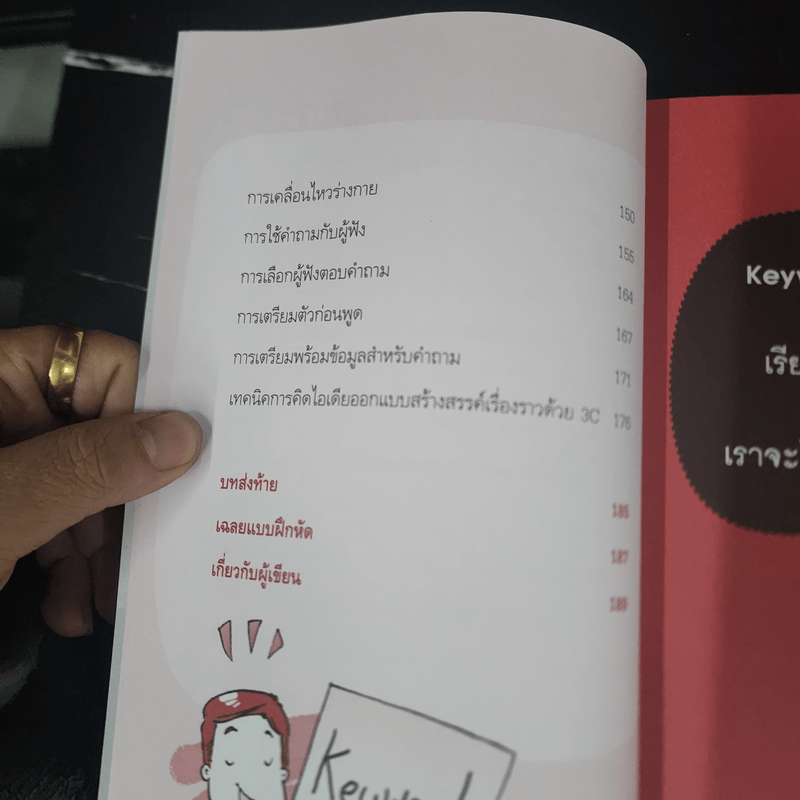 การเคลื่อนไหวร่างกาย 150
การใช้คำถามกับผู้ฟัง 155
การเลือกผู้ฟังตอบคำถาม 164
การเตรียมตัวก่อนพูด 167
การเตรียมพร้อมข้อมูลสำหรับคำถาม 171
เทคนิคการคิดไอเดียออกแบบสร้างสรรค์เรื่องราวด้วย 3C 176
บทส่งท้าย 185
เฉลยแบบฝึกหัด 187
เกี่ยวกับผู้เขียน 189
เราจะ